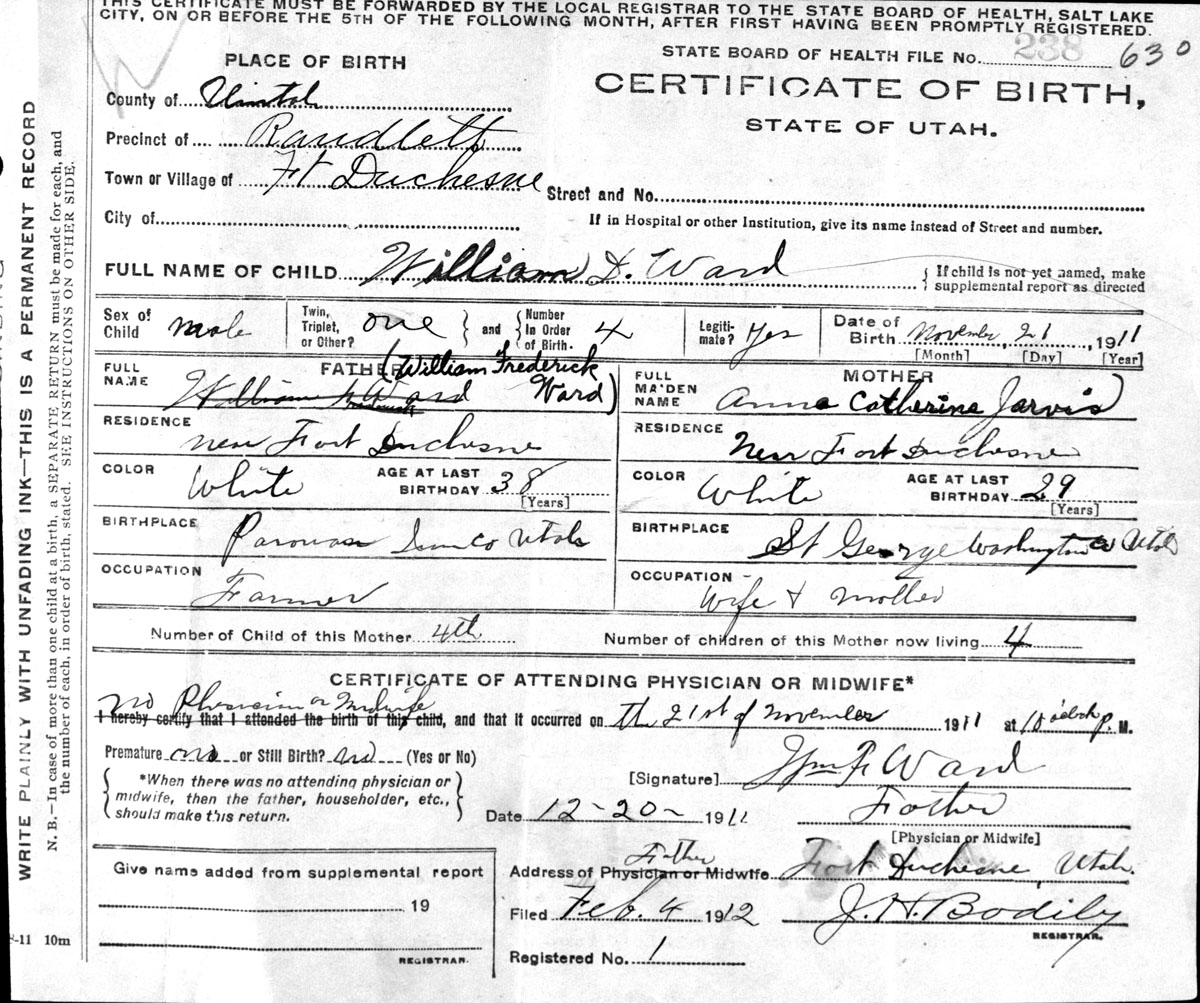 THIS CERTIFICATE MUST BE FORWARDED BY THE LOCAL REGISTRAR TO THE STATE BOARD OF HEALTH, SALT LAKE
CITY, ON OR BEFORE THE 5TH OF THE FOLLOWING MONTH, AFTER FIRST HAVING BEEN PROMPTLY REGISTERED.
STATE BOARD OF HEALTH FILE No. 238 630
PLACE OF BIRTH
CERTIFICATE OF BIRTH,
STATE OF UTAH.
County of Uintah
Precinct of Randlett
Town or Village of Ft Duchesne Street and No.
City of If in Hospital or other Institution, give its name instead of Street and number.
FULL NAME OF CHILD William D. Ward { If child is not yet named, make
supplemental report as directed
Sex of Child male Twin, Triplet, or Other? one } and { Number In Order of Birth. 4 Legiti-mate? Yes Date of Birth November, 21, 1911
[Month] [Day] [Year]
FULL NAME FATHER (William Frederick Ward)
William Ward
FULL MAIDEN NAME MOTHER
Anna Catherine Jarvis
RESIDENCE near Fort Duchesne
RESIDENCE Near Fort Duchesne
COLOR White AGE AT LAST BIRTHDAY 38 [Years]
COLOR White AGE AT LAST BIRTHDAY 29 [Years]
BIRTHPLACE Parowan Iron Co Utah
BIRTHPLACE St George Washington Co Utah
OCCUPATION Farmer
OCCUPATION Wife & Mother
Number of Child of this Mother 4th Number of children of this Mother now living 4
CERTIFICATE OF ATTENDING PHYSICIAN OR MIDWIFE*
no Physician or Midwife
I hereby certify that I attended the birth of this child, and that it occurred on the 21st of November 1911 at 10 oclock p. M.
Premature no or Still Birth? no (Yes or No)
{ *When there was no attending physician or
midwife, then the father, householder, etc.,
should make this return. }
[Signature] Wm F Ward
Date 12-20- 1911 Father
[Physician or Midwife]
Father
Address of Physician or Midwife Fort Duchesne, Utah.
Filed Feb. 4 1912 J. H. Bodily
REGISTRAR.
Registered No. 1
Give name added from supplemental report
19
REGISTRAR.
-11 10m
WRITE PLAINLY WITH UNFADING INK—THIS IS A PERMANENT RECORD
N. B.—In case of more than one child at a birth, a SEPARATE RETURN must be made for each, and
the number of each, in order of birth, stated. SEE INSTRUCTIONS ON OTHER SIDE.